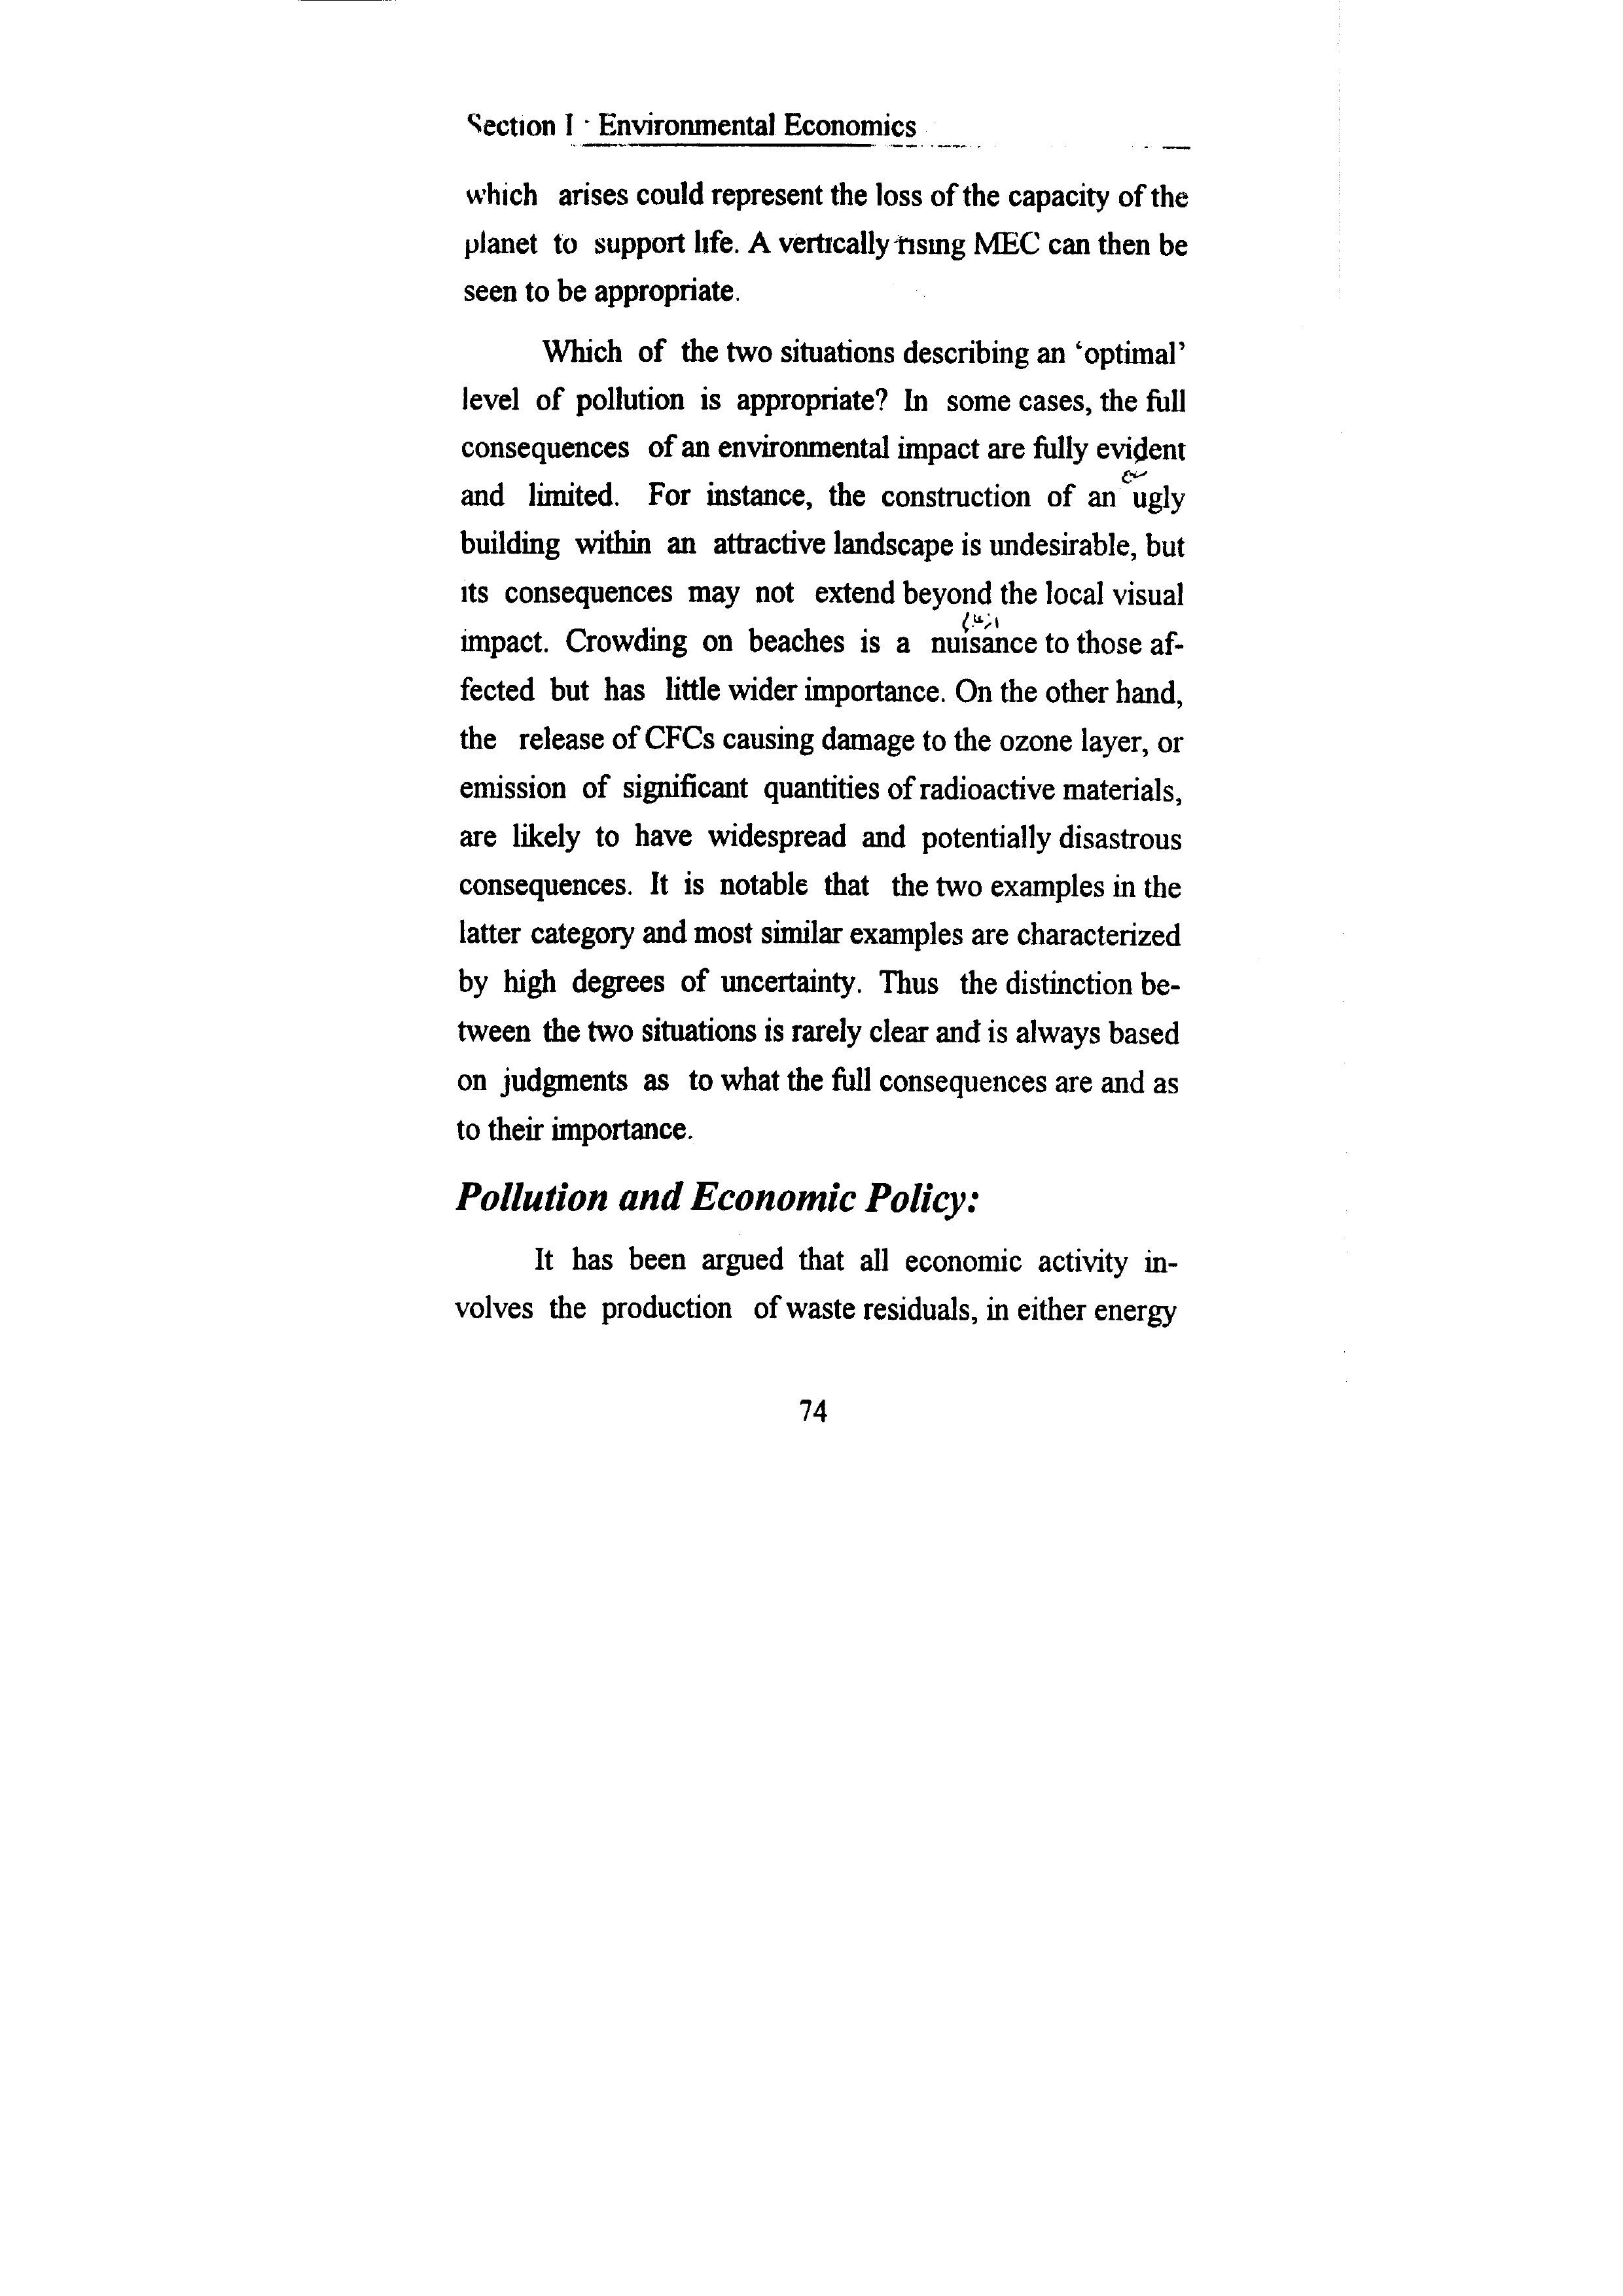 Section I · Environmental Economics
which arises could represent the loss of the capacity of the
planet to support life. A vertically rising MEC can then be
seen to be appropriate.
Which of the two situations describing an ‘optimal’
level of pollution is appropriate? In some cases, the full
consequences of an environmental impact are fully evident
and limited. For instance, the construction of an ugly
building within an attractive landscape is undesirable, but
its consequences may not extend beyond the local visual
impact. Crowding on beaches is a nuisance to those af-
fected but has little wider importance. On the other hand,
the release of CFCs causing damage to the ozone layer, or
emission of significant quantities of radioactive materials,
are likely to have widespread and potentially disastrous
consequences. It is notable that the two examples in the
latter category and most similar examples are characterized
by high degrees of uncertainty. Thus the distinction be-
tween the two situations is rarely clear and is always based
on judgments as to what the full consequences are and as
to their importance.
Pollution and Economic Policy:
It has been argued that all economic activity in-
volves the production of waste residuals, in either energy
74